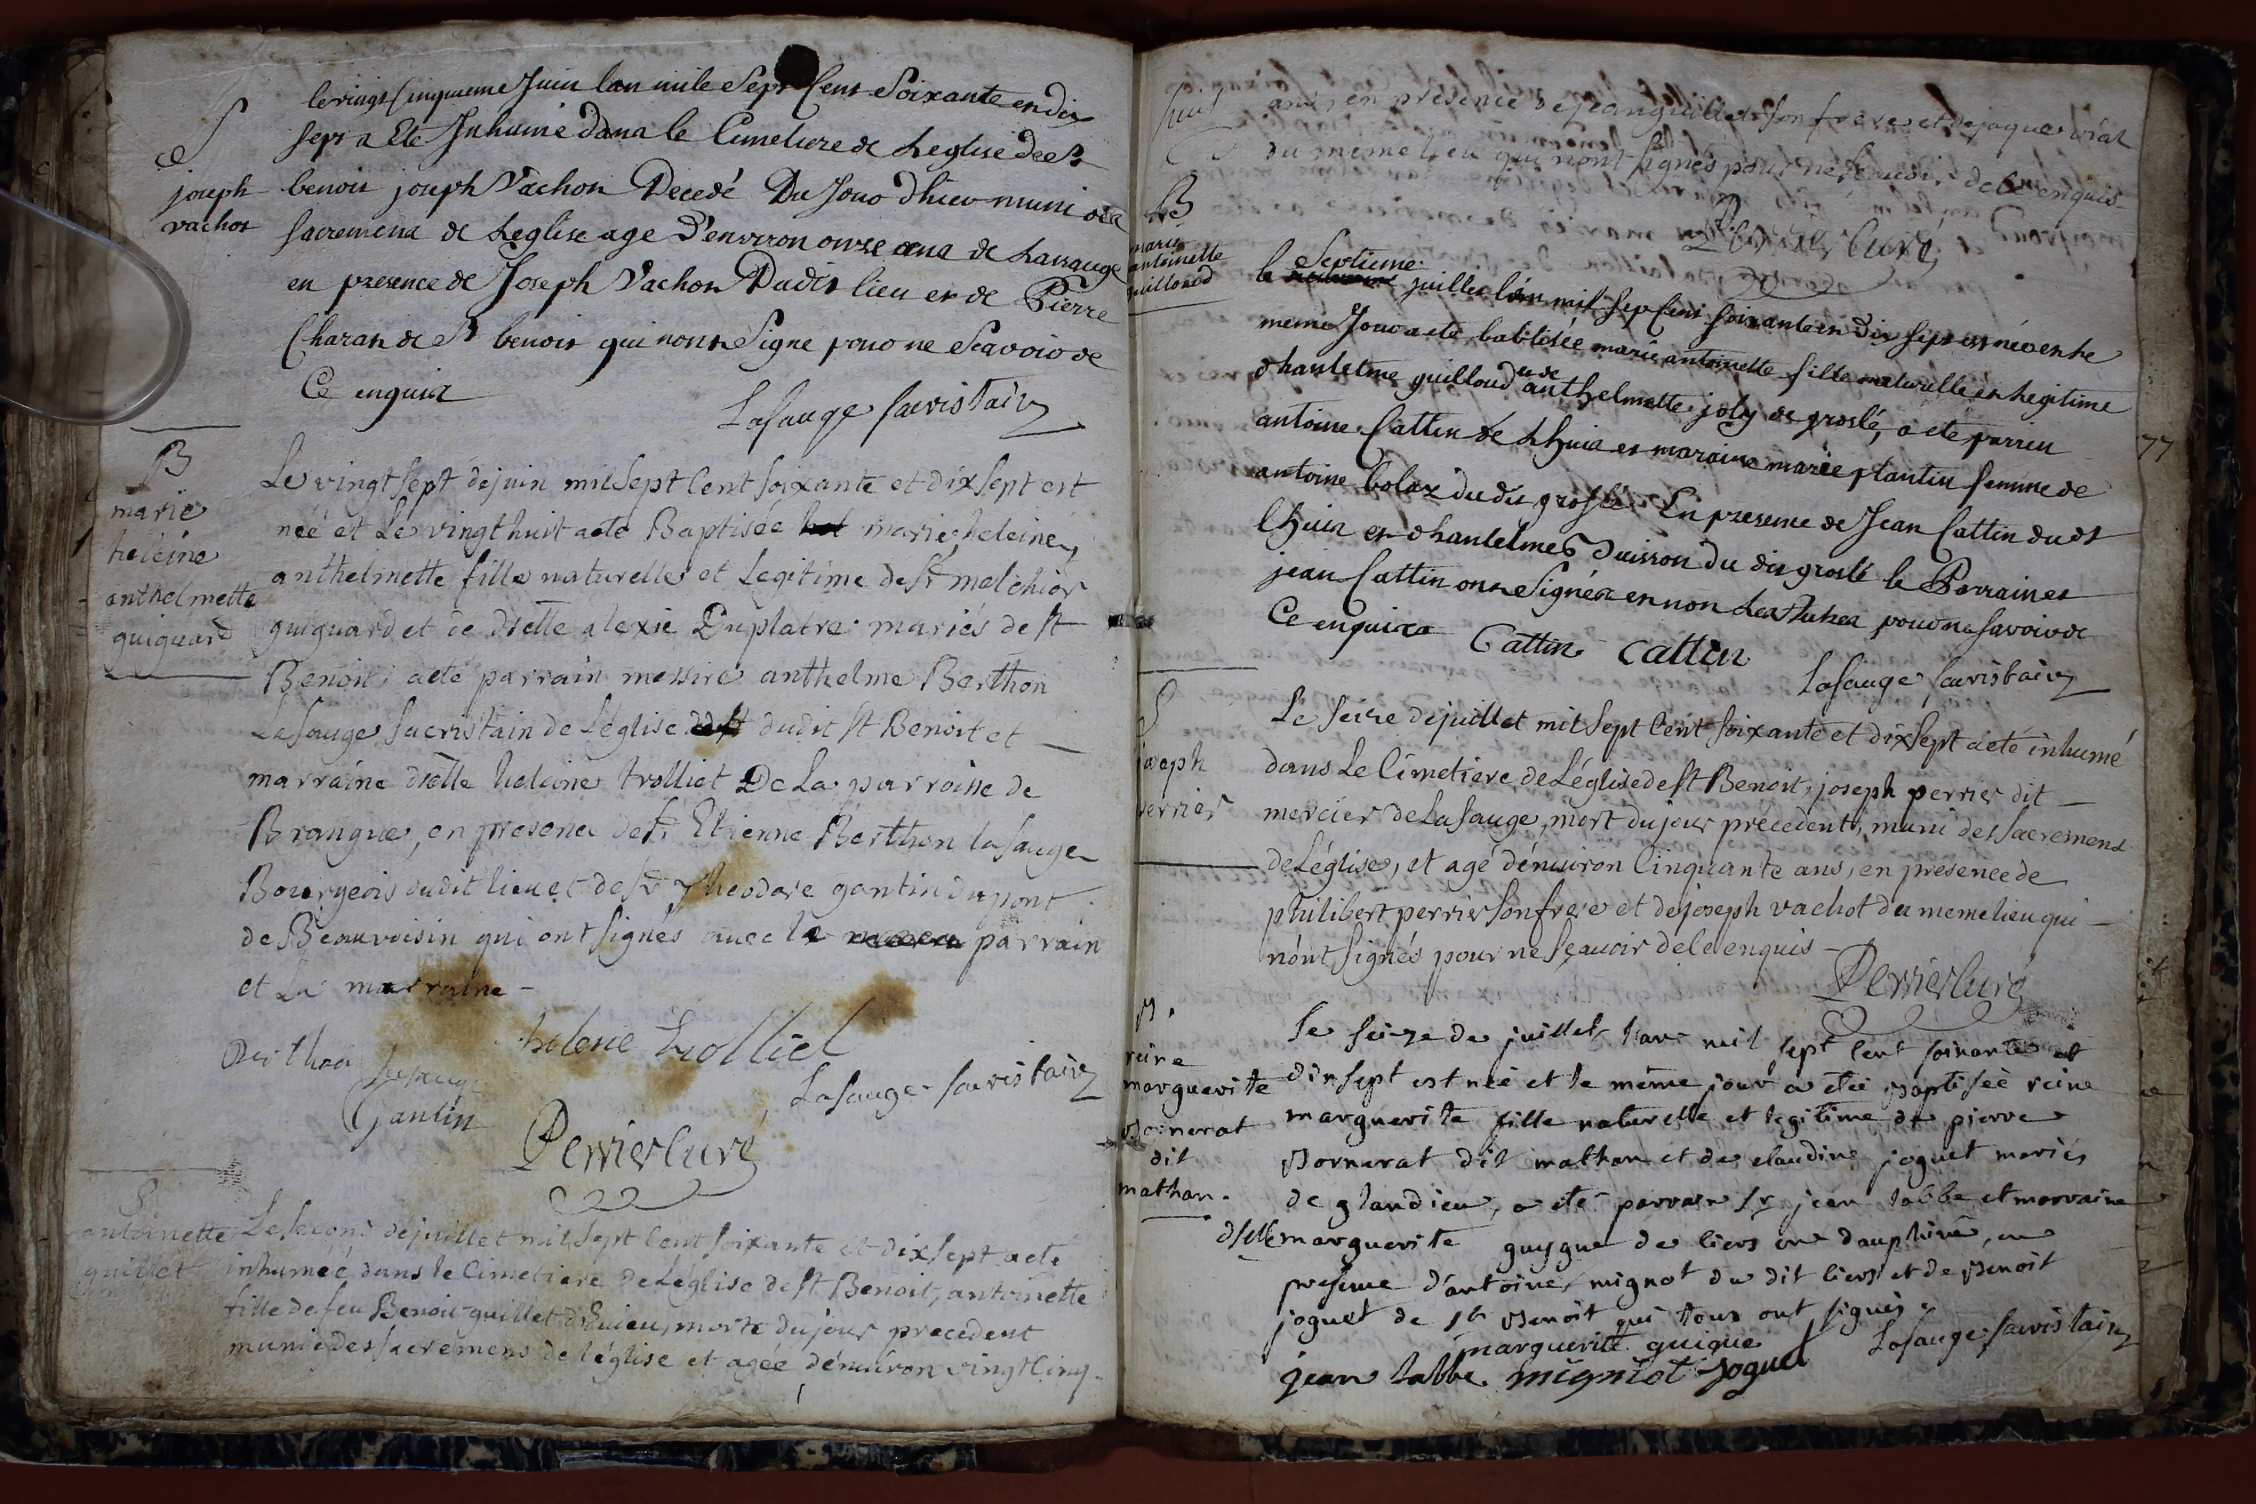 S
ce
joseph
vachot
le vingt Cinquieme Juin lan mile Sept Cens Soixante en dix
sept a Ete Inhumé dans le Cimetiere de Leglise de St
benoit joseph Vachon Decedé Du Jour d'hier muni des
sacremens de Leglise age d'environ onze ans de Lassauge
en presence de Joseph Vachon Dudit lieu et de Pierre
Charat de St benoit qui nont Signe pour ne Scavoir de
Ce enquis
Lasauge sacristain
B
marie
heleine
anthelmette
guiguard
Le vingt sept de juin mil sept Cent soixante et dix sept est
née et Le vingt huit a eté Baptisée marie, heleine,
anthelmette fille naturelle et Legitime de Sr melchior
guiguard et de dselle alexie Duplatre mariés de St
Benoit, a eté parrain messire anthelme Berthon
Lasauge sacristain de L'église dudit St Benoit et
marraine dselle heleine trolliet De La parroisse de
Brangue, en presence de Sr Etienne Berthon lasauge
Bourgeois dudit lieu et de Sr Theodore gantin du pont
de Beauvoisin qui ont signés avec le parrain
et La marraine
Berthon Lasauge
helene trolliet
Gantin
Lasauge sacristain
Perrier Curé
S
antoinette
guillet
Le second de juillet mil sept Cent soixante et dix sept a eté
inhumée dans le Cimetiere de L'église de St Benoit, antoinette
fille de feu Benoit guillet d'Evieu, morte du jour precedent
munie des sacremens de l'église et agée d'environ vingt Cinq
huit
ans, en présence de jean guillet son frere et de jaques vial
du meme lieu qui n'ont signés pour ne scavoir de Ce enquis
Perrier Curé
B
marie
antoinette
guilloud
le Septieme juillet l'an mil Sept Cens soixante en Dix sept est née en he
meme Jour a eté babtisée marie antoinette fille naturelle en Legitime
d'hantelme guilloud et de anthelmette joly de groslé, a eté parrien
antoine Cattin de Lhuis et maraine marie plantin femme de
antoine bolaz du dit groslé En presence de Jean Cattin du dt
Lhuis et d'hantelme Duisson du dit groslé le Parrain et
jean Cattin ont Signés en non Les Autres pour ne savoir de
Ce enquis
Cattin Cattin
Lasauge sacristain
77
S
joseph
perrier
Le seize de juillet mil sept Cent soixante et dix sept a eté inhumé
dans Le Cimetiere de L'église de St Benoit, joseph perrier dit
mercier de Lasauge, mort du jour précedent, muni des sacremens
de L'église, et agé d'environ Cinquante ans, en presence de
philibert perrier son frere et de joseph vachot du meme lieu qui
n'ont signés pour ne sçavoir de Ce enquis
Perrier Curé
B.
reine
marguerite
Bornerat
dit
mathan.
le seize de juillet l'an mil sept Cent soixante et
dix sept est née et le même jour a étée Baptisée reine
marguerite fille naturelle et legitime de pierre
Bornerat dit mathan et de claudine joguet mariés
de glandieu, a eté parrain sr jean labbe et marraine
dselle marguerite guygue de liers en dauphiné, en
presence d'antoine mignot du dit liers et de Benoit
joguet de St Benoit qui tous ont signés.
marguerite guigue
Lasauge sacristain
jean labbe migniot joguet